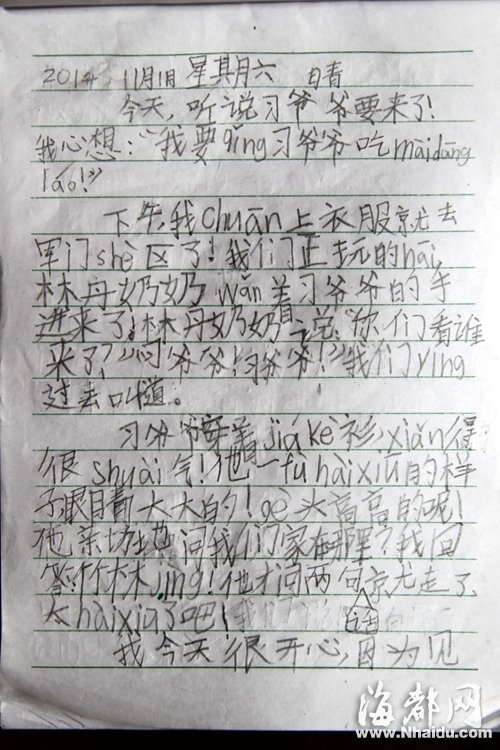 2014 11月1日 星其月六 日青
今天,听说习爷爷要来了!
我心想:“我要qǐng习爷爷吃màidāng
láo!”
下午,我chuān上衣服就去
军门shè区了!我们正玩的hāi,
林丹奶奶wǎn着习爷爷的手
进来了,林丹奶奶说:“你们看谁
来了?”“习爷爷!习爷爷!”我们yíng
过去叫道。
习爷爷穿着jiákè衫,xiǎn得
很shuài气!他一fù hàixiū的样
子眼睛大大的!gè头高高的呢!
他亲切地问我们家在哪里?我回
答:竹林jìng!他才问两句话就走了
太hàixiū了吧!
我今天很开心,因为见
海都网
www.Nhaidu.com